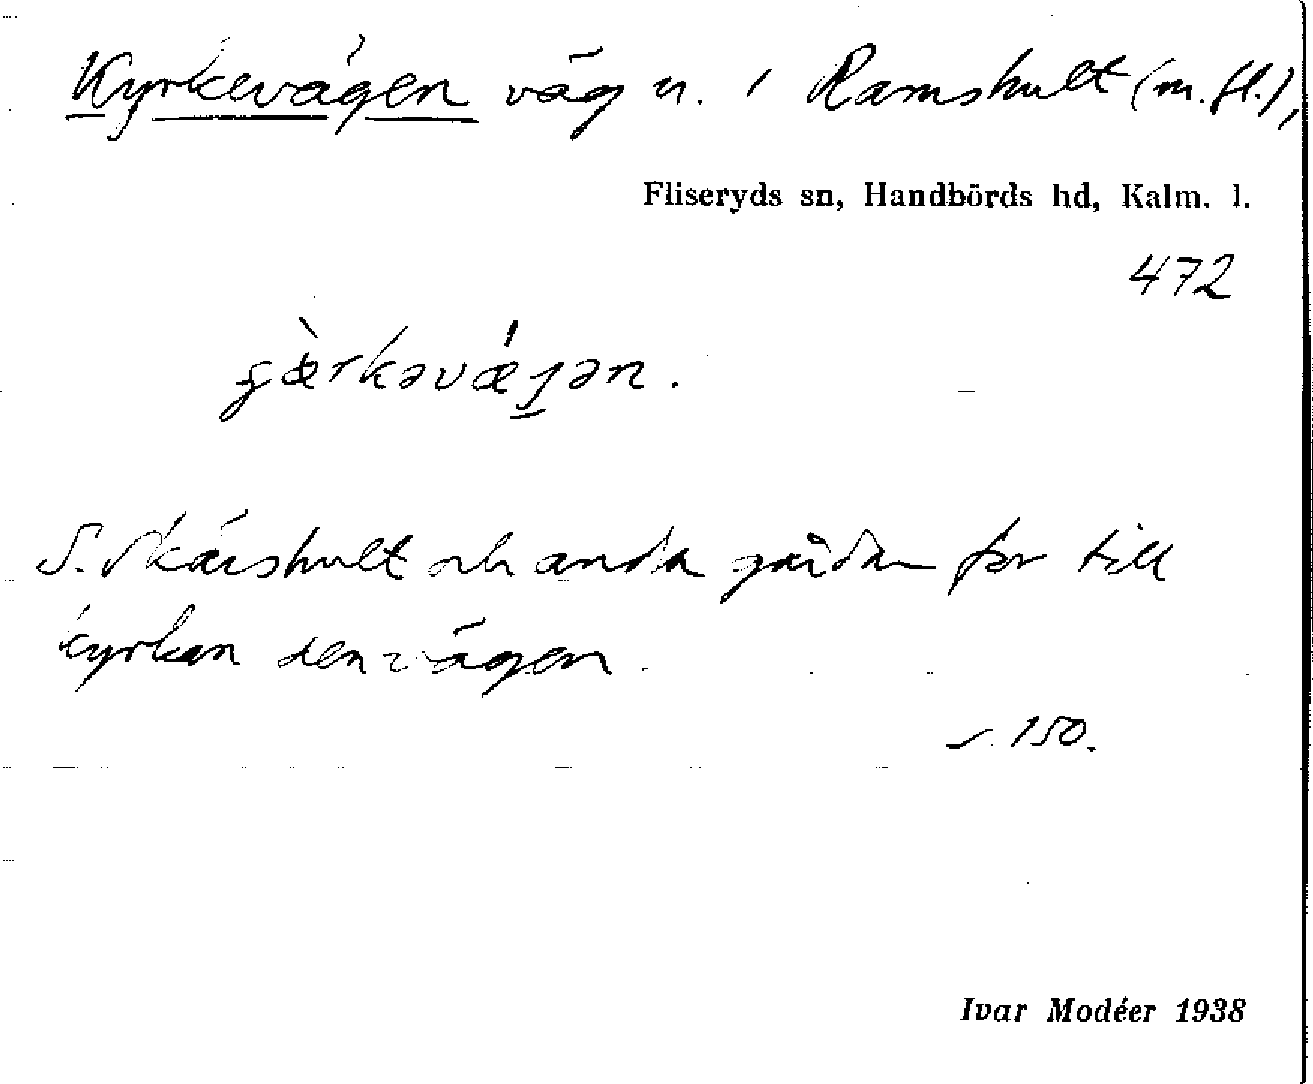 Kyrkevägen väg n. i Ramshult (m. fl.),
Fliseryds sn, Handbörds hd, Kalm. l.
472
ɕæ̀rkəvǽgən.
S. Skärshult och andra gårdar for till
kyrkan den vägen.
s. 150.
Ivar Modéer 1938